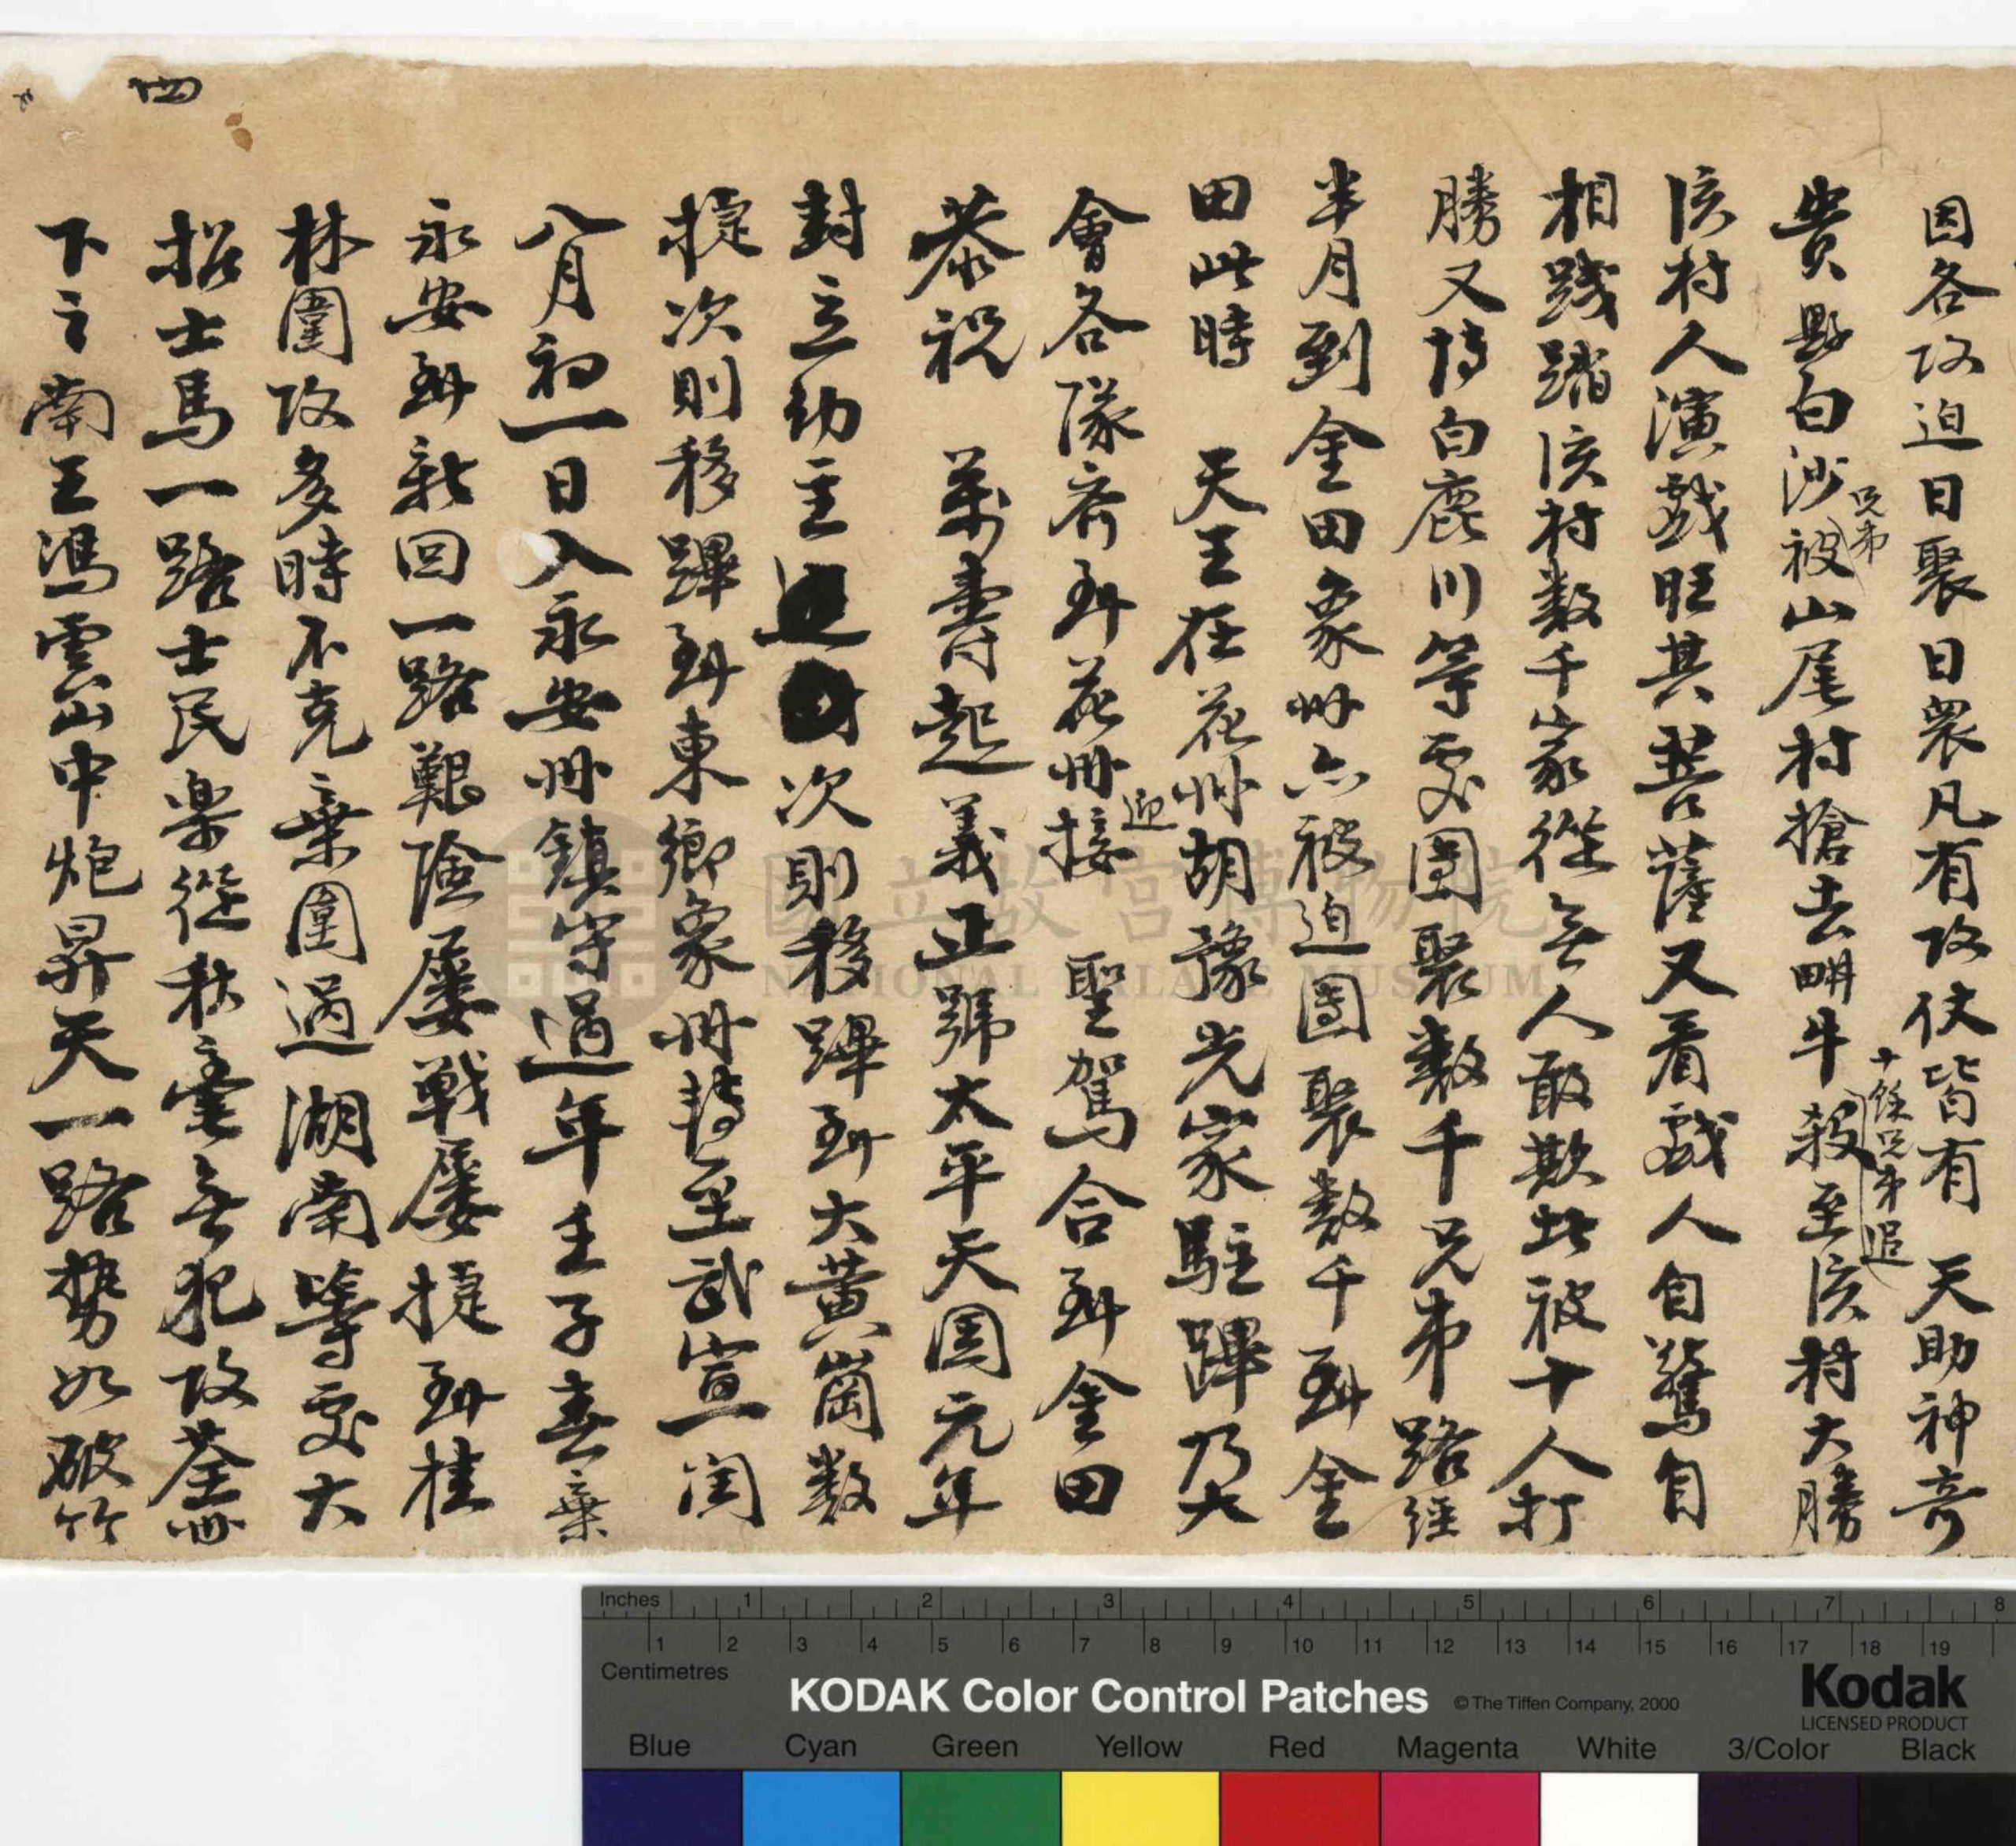 因各攻迫日聚日衆凡有攻仗皆有　天助神奇
貴縣白沙兄弟被山尾村搶去畊牛十餘兄弟追殺至该村大勝
该村人演戱旺其菩薩又看戱人自驚自
相踐踏该村数千家從無人敢欺此被十人打
勝又博白鹿川等處團聚数千兄弟路經
半月到金田象州亦被迫團聚数千到金
田此時　天王在花州胡豫光家駐蹕乃大
會各隊齊到花州迎接　聖駕合到金田
恭祝　萬壽起義正號太平天囯元年
封立幼主　次則移蹕到大黄崗数
捷次則移蹕到東鄉象州轉至武宣閏
八月初一日入永安州鎮守過年壬子春棄
永安到新回一路艱險屢戦屢捷到桂
林圍攻多時不克棄圍過湖南等處大
招士馬一路士民樂從秋毫無犯攻荃州
下之南王馮雲山中炮昇天一路势如破竹
四
國立故宮博物院
NATIONAL PALACE MUSEUM
Inches 1 2 3 4 5 6 7 8
1 2 3 4 5 6 7 8 9 10 11 12 13 14 15 16 17 18 19
Centimetres
KODAK Color Control Patches ©The Tiffen Company, 2000
Kodak
LICENSED PRODUCT
Blue Cyan Green Yellow Red Magenta White 3/Color Black